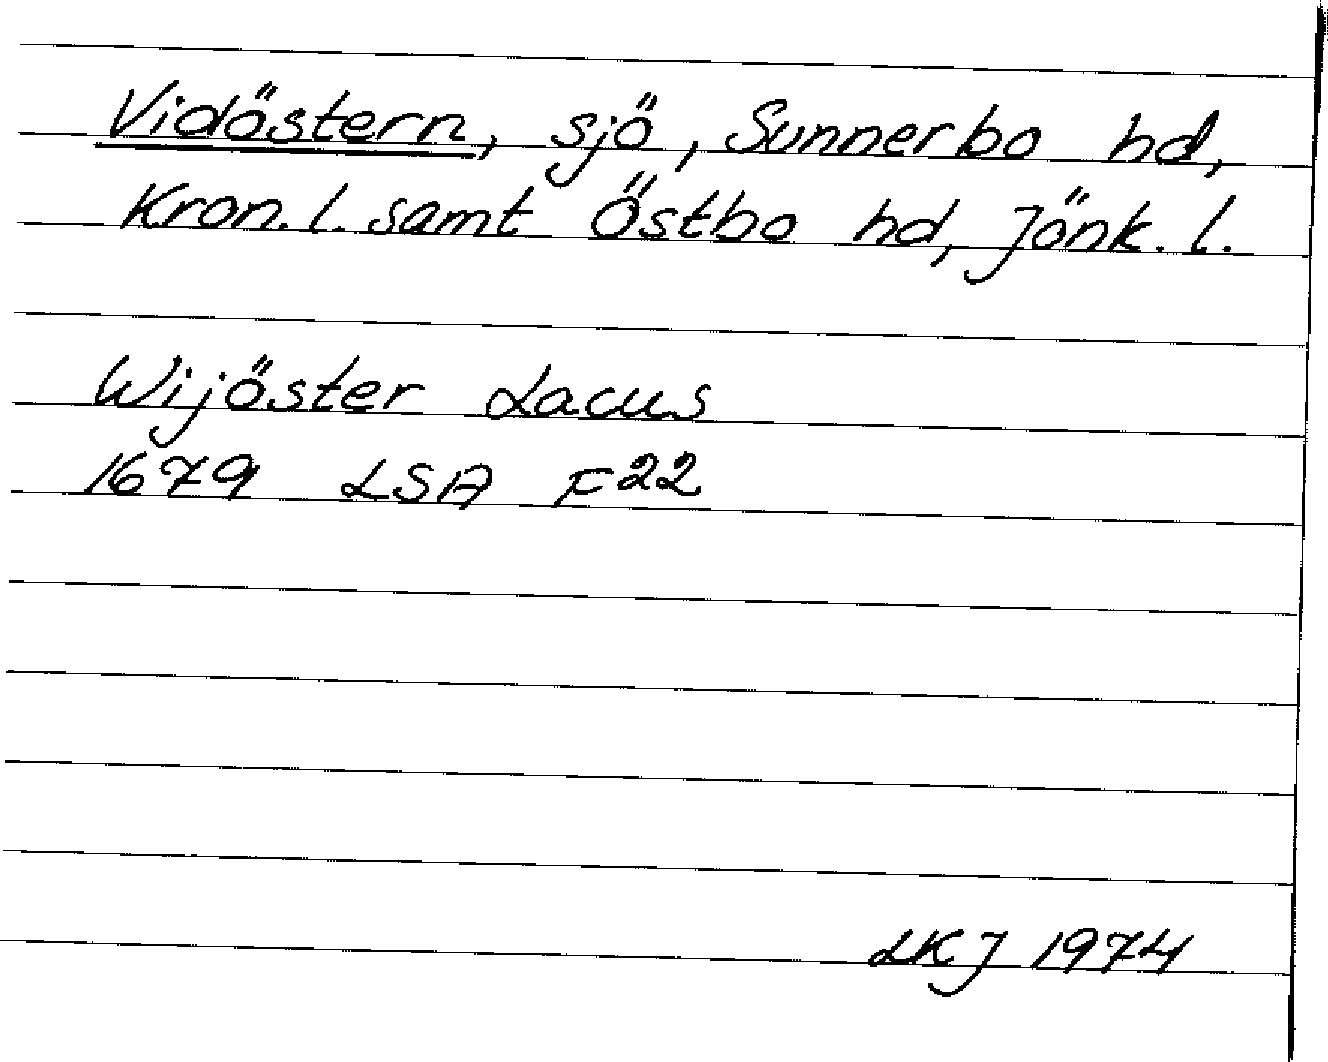 Vidöstern, sjö, Sunnerbo hd,
Kron. l. samt Östbo hd, Jönk. l.
Wijöster Lacus
1679 LSA F22
LKJ 1974